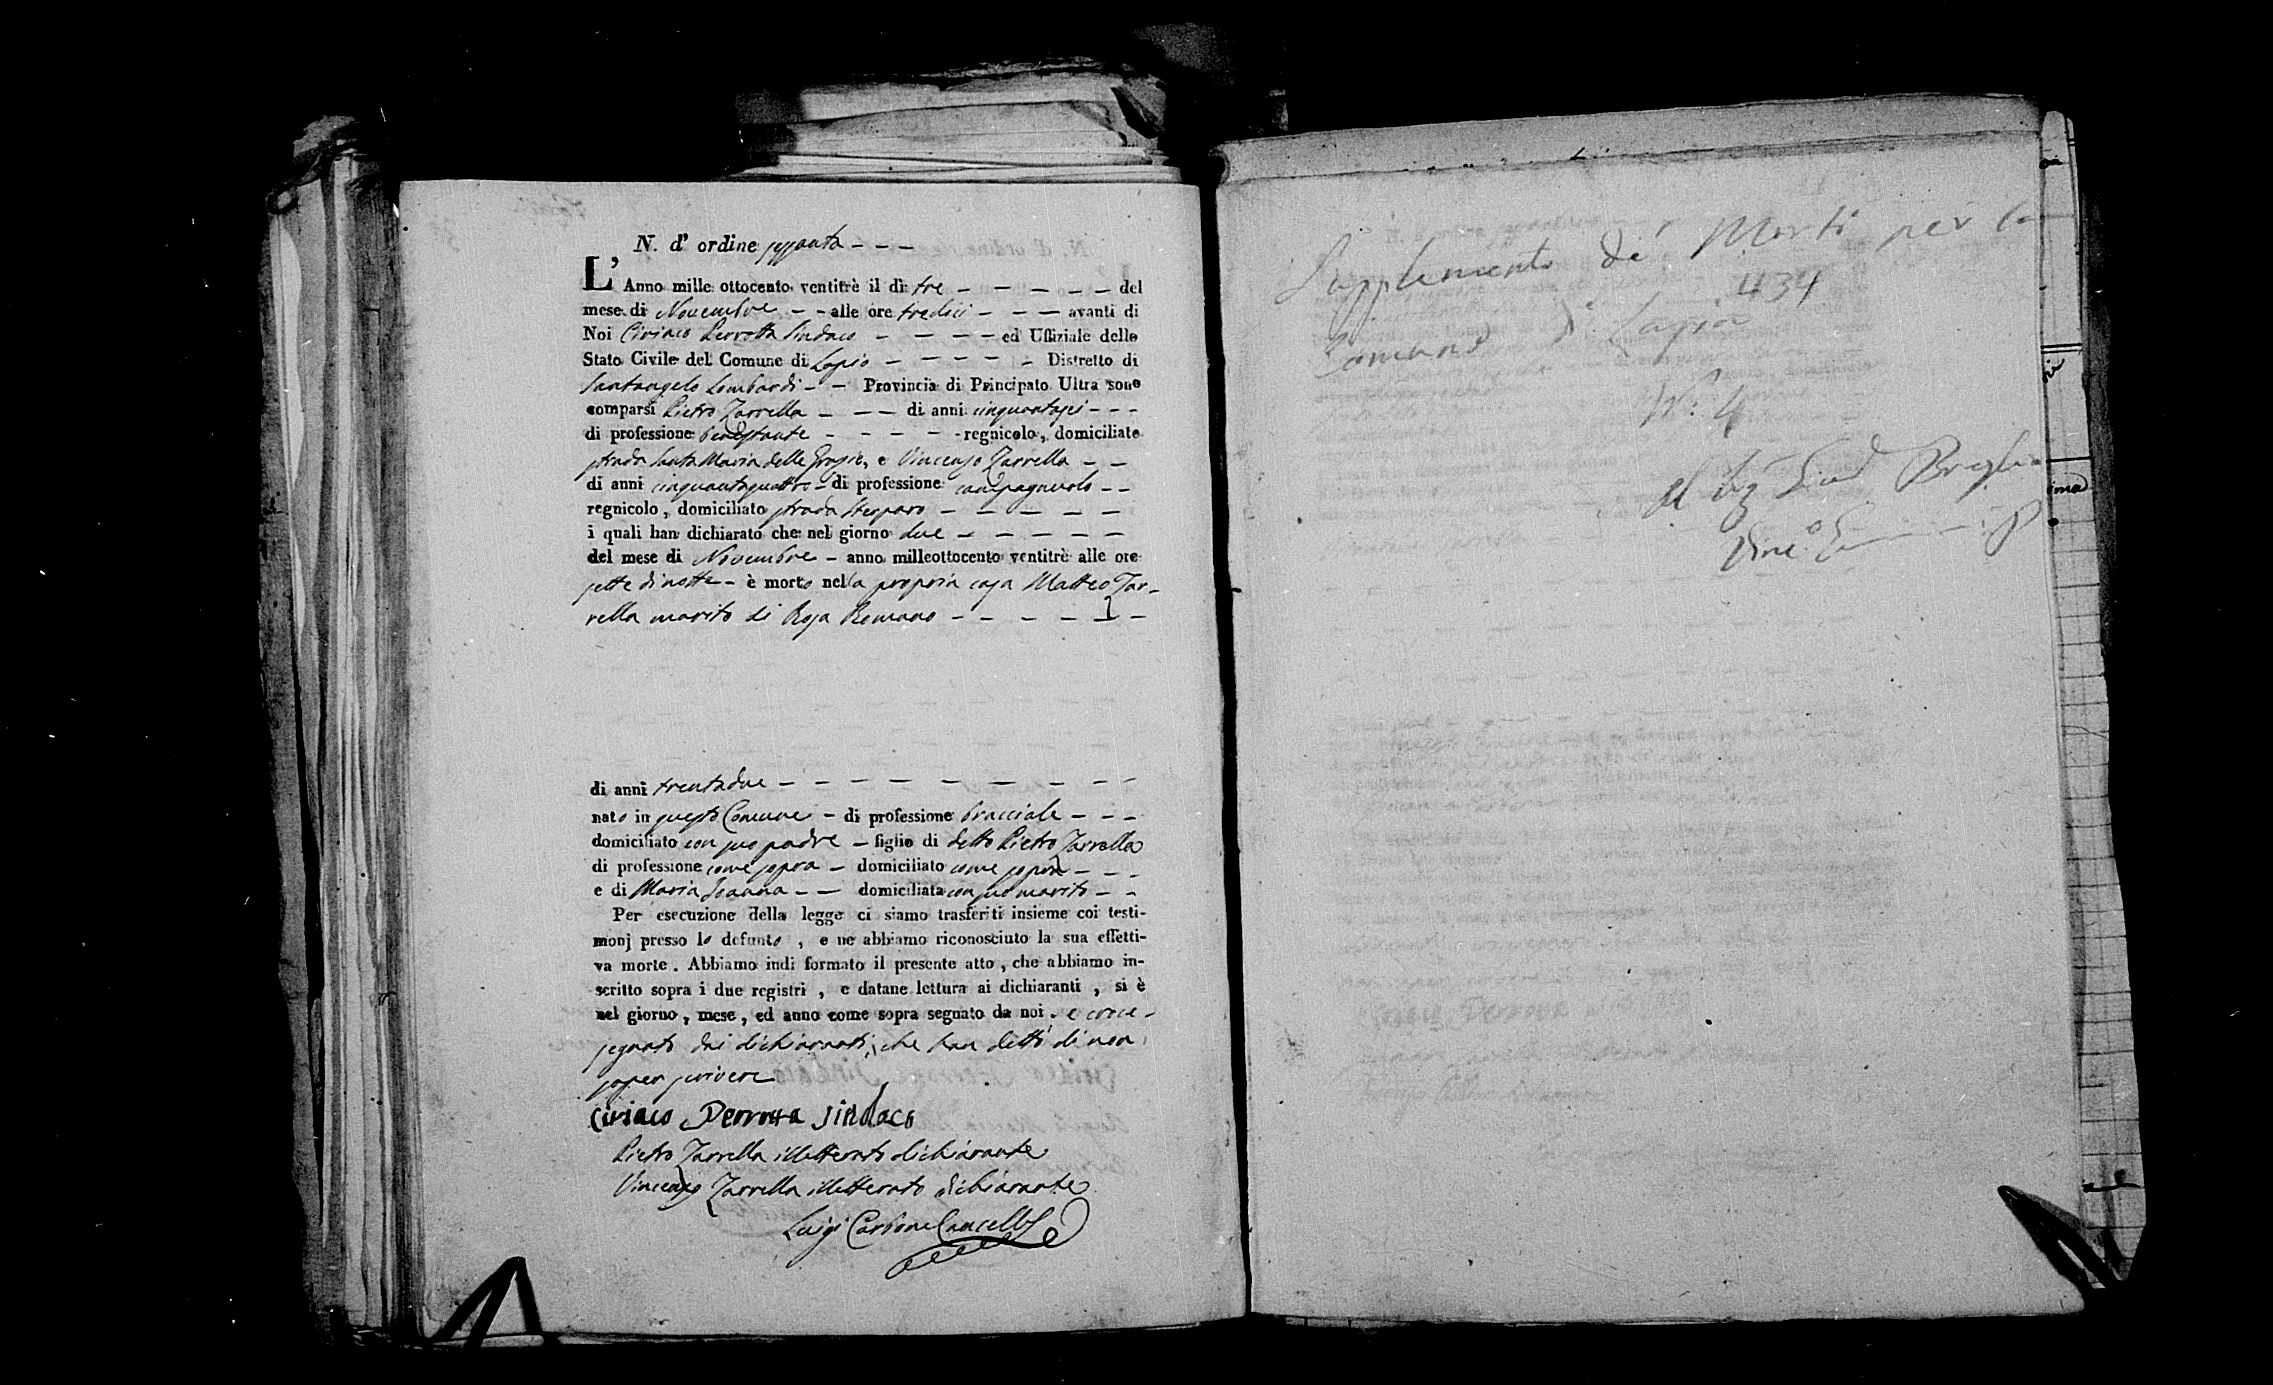 N. d' ordine sessanta - - -
L' Anno mille ottocento ventitrè il dì tre - - - - - del
mese di Novembre - - alle ore tredici - - - avanti di
Noi Ciriaco Perrotta Sindaco - - - - ed Uffiziale dello
Stato Civile del Comune di Lapio - - - - - Distretto di
Santangelo Lombardi - - Provincia di Principato Ultra sono
comparsi Pietro Zarrella - - - di anni cinquantasei - - -
di professione benestante - - - - - regnicolo, domiciliato
strada Santa Maria delle Grazie, e Vincenzo Zarrella - -
di anni cinquantaquattro - di professione campagnuolo - -
regnicolo, domiciliato strada - - - - -
i quali han dichiarato che nel giorno due - - - - -
del mese di Novembre - anno milleottocento ventitrè alle ore
sette di notte - è morto nella propria casa Matteo Zar-
rella marito di Rosa Romano - - - - - -
di anni trentadue - - - - - - - - -
nato in questo Comune - di professione bracciale - - -
domiciliato con suo padre - figlio di detto Pietro Zarrella
di professione come sopra - domiciliato come sopra - - -
e di Maria Joanna - - domiciliata con suo marito - -
Per esecuzione della legge ci siamo trasferiti insieme coi testi-
monj presso lo defunto, e ne abbiamo riconosciuto la sua effetti-
va morte. Abbiamo indi formato il presente atto, che abbiamo in-
scritto sopra i due registri, e datane lettura ai dichiaranti, si è
nel giorno, mese, ed anno come sopra segnato da noi. e croce-
segnato dai dichiaranti, che han detto di non
saper scrivere
Ciriaco Perrotta Sindaco
Pietro Zarrella illetterato dichiarante
Vincenzo Zarrella illetterato dichiarante
Luigi Carbone Cancell
Supplemento de' Morti per la
434
Comune di Lapio
N: 4